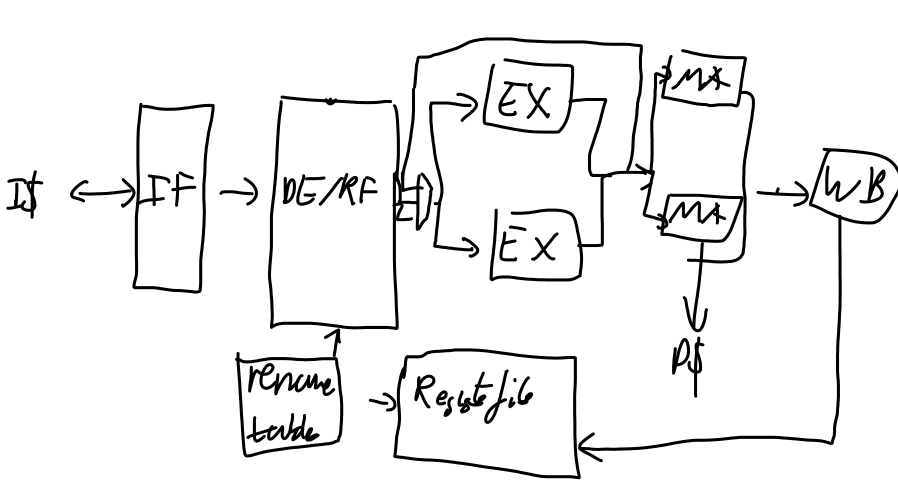 I$
IF
DE/RF
EX
EX
MA
MA
WB
D$
rename
table
Registefile